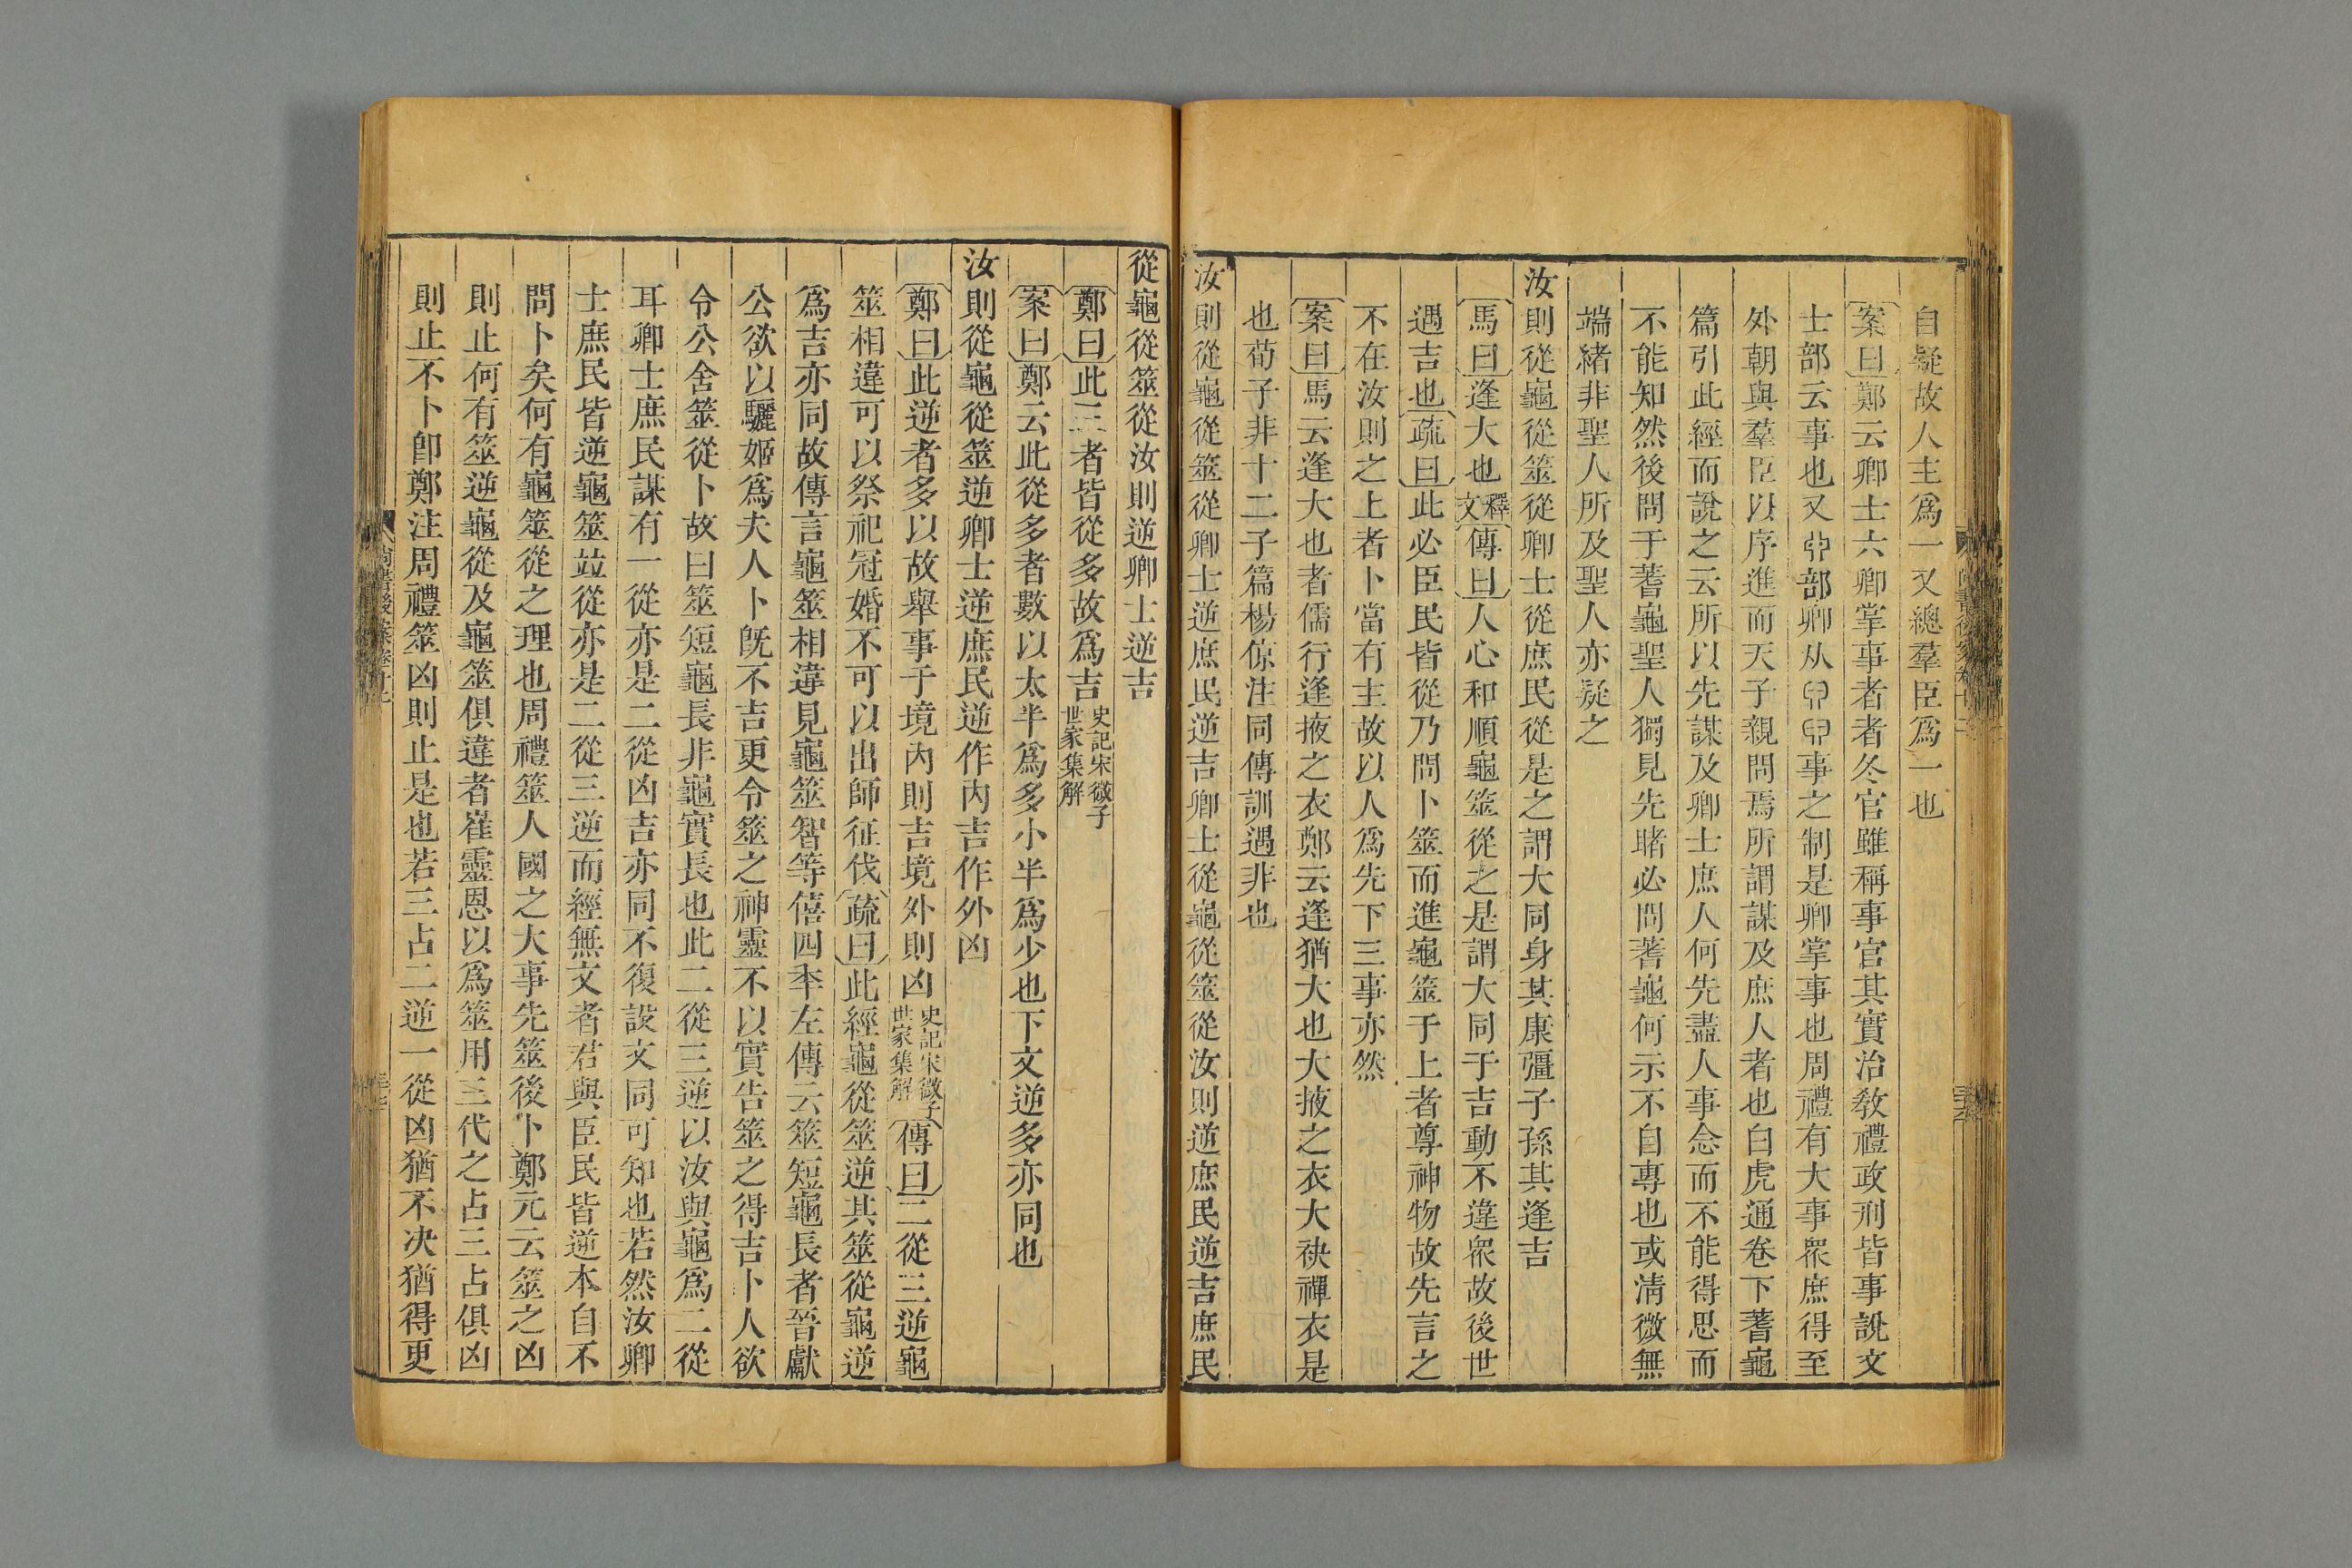 自疑故人主爲一又總羣臣爲一也
案曰鄭云卿士六卿掌事者者冬官雖稱事官其實治敎禮政刑皆事說文
士部云事也又𠨍部卿从𠨍𠨍事之制是卿掌事也周禮有大事衆庶得至
外朝與羣臣以序進而天子親問焉所謂謀及庶人者也白虎通卷下蓍龜
篇引此經而說之云所以先謀及卿士庶人何先盡人事念而不能得思而
不能知然後問于蓍龜聖人獨見先睹必問蓍龜何示不自專也或淸微無
端緒非聖人所及聖人亦疑之
汝則從龜從筮從卿士從庶民從是之謂大同身其康彊子孫其逢吉
馬曰逢大也釋文傳曰人心和順龜筮從之是謂大同于吉動不違衆故後世
遇吉也疏曰此必臣民皆從乃問卜筮而進龜筮于上者尊神物故先言之
不在汝則之上者卜當有主故以人爲先下三事亦然
案曰馬云逢大也者儒行逢掖之衣鄭云逢猶大也大掖之衣大袂襌衣是
也荀子非十二子篇楊倞注同傳訓遇非也
汝則從龜從筮從卿士逆庶民逆吉卿士從龜從筮從汝則逆庶民逆吉庶民
從龜從筮從汝則逆卿士逆吉
鄭曰此三者皆從多故爲吉史記宋微子世家集解
案曰鄭云此從多者數以太半爲多小半爲少也下文逆多亦同也
汝則從龜從筮逆卿士逆庶民逆作內吉作外凶
鄭曰此逆者多以故舉事于境內則吉境外則凶史記宋微子世家集解傳曰二從三逆龜
筮相違可以祭祀冠婚不可以出師征伐疏曰此經龜從筮逆其筮從龜逆
爲吉亦同故傳言龜筮相違見龜筮智等僖四年左傳云筮短龜長者晉獻
公欲以驪姬爲夫人卜旣不吉更令筮之神靈不以實告筮之得吉卜人欲
令公舍筮從卜故曰筮短龜長非龜實長也此二從三逆以汝與龜爲二從
耳卿士庶民謀有一從亦是二從凶吉亦同不復設文同可知也若然汝卿
士庶民皆逆龜筮竝從亦是二從三逆而經無文者若與臣民皆逆本自不
問卜矣何有龜筮從之理也周禮筮人國之大事先筮後卜鄭元云筮之凶
則止何有筮逆龜從及龜筮俱違者崔靈恩以爲筮用三代之占三占俱凶
則止不卜卽鄭注周禮筮凶則止是也若三占二逆一從凶猶不決猶得更
尚書後案卷十二